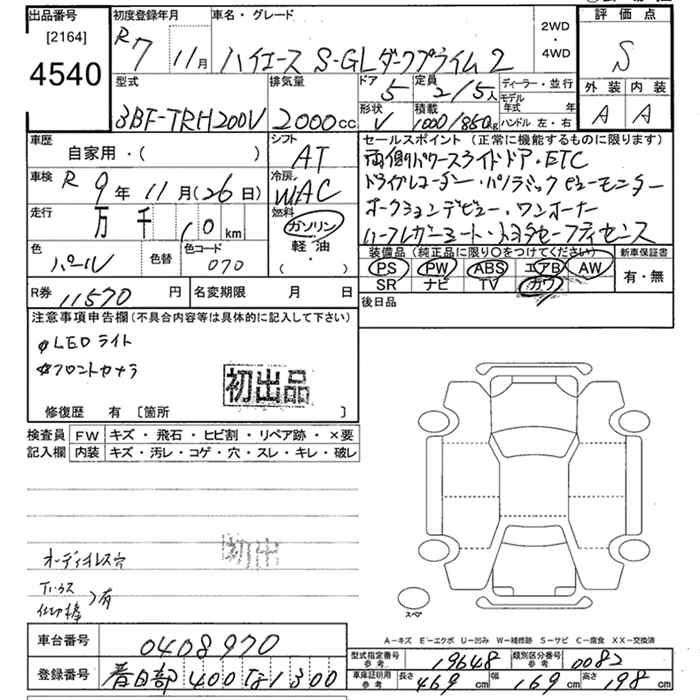 出品番号
[2164]
4540
初度登録年月
R7 11月
車名・グレード
ハイエース S-GLダークプライム2
2WD
・
4WD
評価点
S
外装 内装
A A
型式
3BF-TRH200V
排気量
2000cc
ドア 5
定員 2/5人
形状 V
積載 1000/850kg
ディーラー・並行
モデル年式 年
ハンドル 左・右
車歴
自家用・( )
シフト
AT
車検 R9年11月(26日)
冷房
WAC
走行 万 千 10km
燃料
ガソリン
軽油
・
( )
色 パール
色替
色コード 070
R券 11570円
名変期限 月 日
セールスポイント(正常に機能するものに限ります)
両側パワースライドドア・ETC
ドライブレコーダー・パノラミックビューモニター
オークションデビュー・ワンオーナー
ハーフレザーシート・トヨタセーフティセンス
装備品(純正品に限り○をつけてください)
PS PW ABS エアB AW
SR ナビ TV カワ
新車保証書
有・無
後日品
注意事項申告欄(不具合内容等は具体的に記入して下さい)
LEDライト
フロントカメラ
初出品
修復歴 有 [箇所 ]
検査員記入欄
FW キズ・飛石・ヒビ割・リペア跡・×要
内装 キズ・汚レ・コゲ・穴・スレ・キレ・破レ
オーディオレス穴
初出
有
スペア
A-キズ E-エクボ U-凹み W-補修跡 S-サビ C-腐食 XX-交換済
車台番号 0408970
登録番号 春日部 400 1300
型式指定番号参考 19648
類別区分番号参考 0082
車庫証明用参考 長さ 469cm 幅 169cm 高さ 198cm